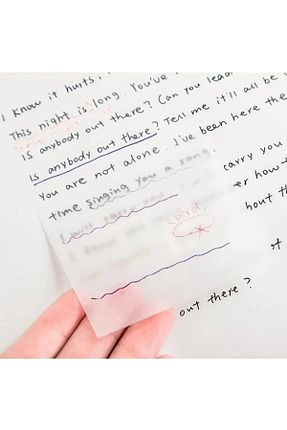 I know it hurts,
This night is long. You've
Is anybody out there? Can you lead
Is anybody out there? Tell me it'll all be
You are not alone. I've been here the
time singing you a song.
I will carry you carry you
bird er how t
bout th
of
out there?